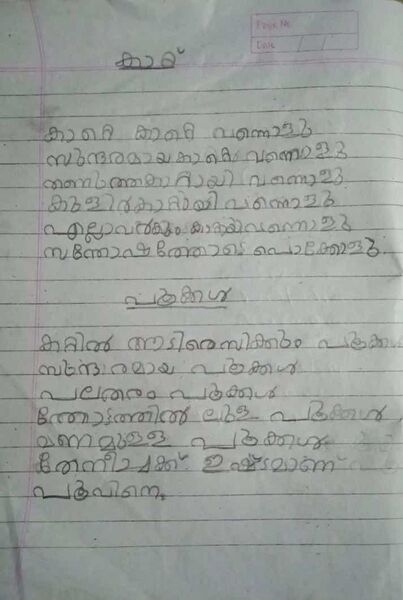 Page No
Date
കാറ്റ്
കാറ്റെ കാറ്റെ വന്നോളു
സുന്ദരമായ കാറ്റെ വന്നോളു
തണുത്തകാറ്റായി വന്നോളു
കുളിർകാറ്റായി വന്നോളു
എല്ലാവർക്കും കാറ്റായിവന്നോളു
സന്തോഷത്തോടെ പൊക്കോളു
പൂക്കൾ
കാറ്റിൽ ആടിരസിക്കും പൂക്കൾ
സുന്ദരമായ പൂക്കൾ
പലതരം പൂക്കൾ
തോട്ടത്തിൽ ലുള്ള പൂക്കൾ
മണമുള്ള പൂക്കൾ
തേനീച്ചക്ക് ഇഷ്ടമാണ്
പൂവിനെ